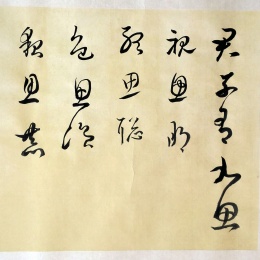 君子有九思
視思明
聽思聰
色思溫
貌思恭